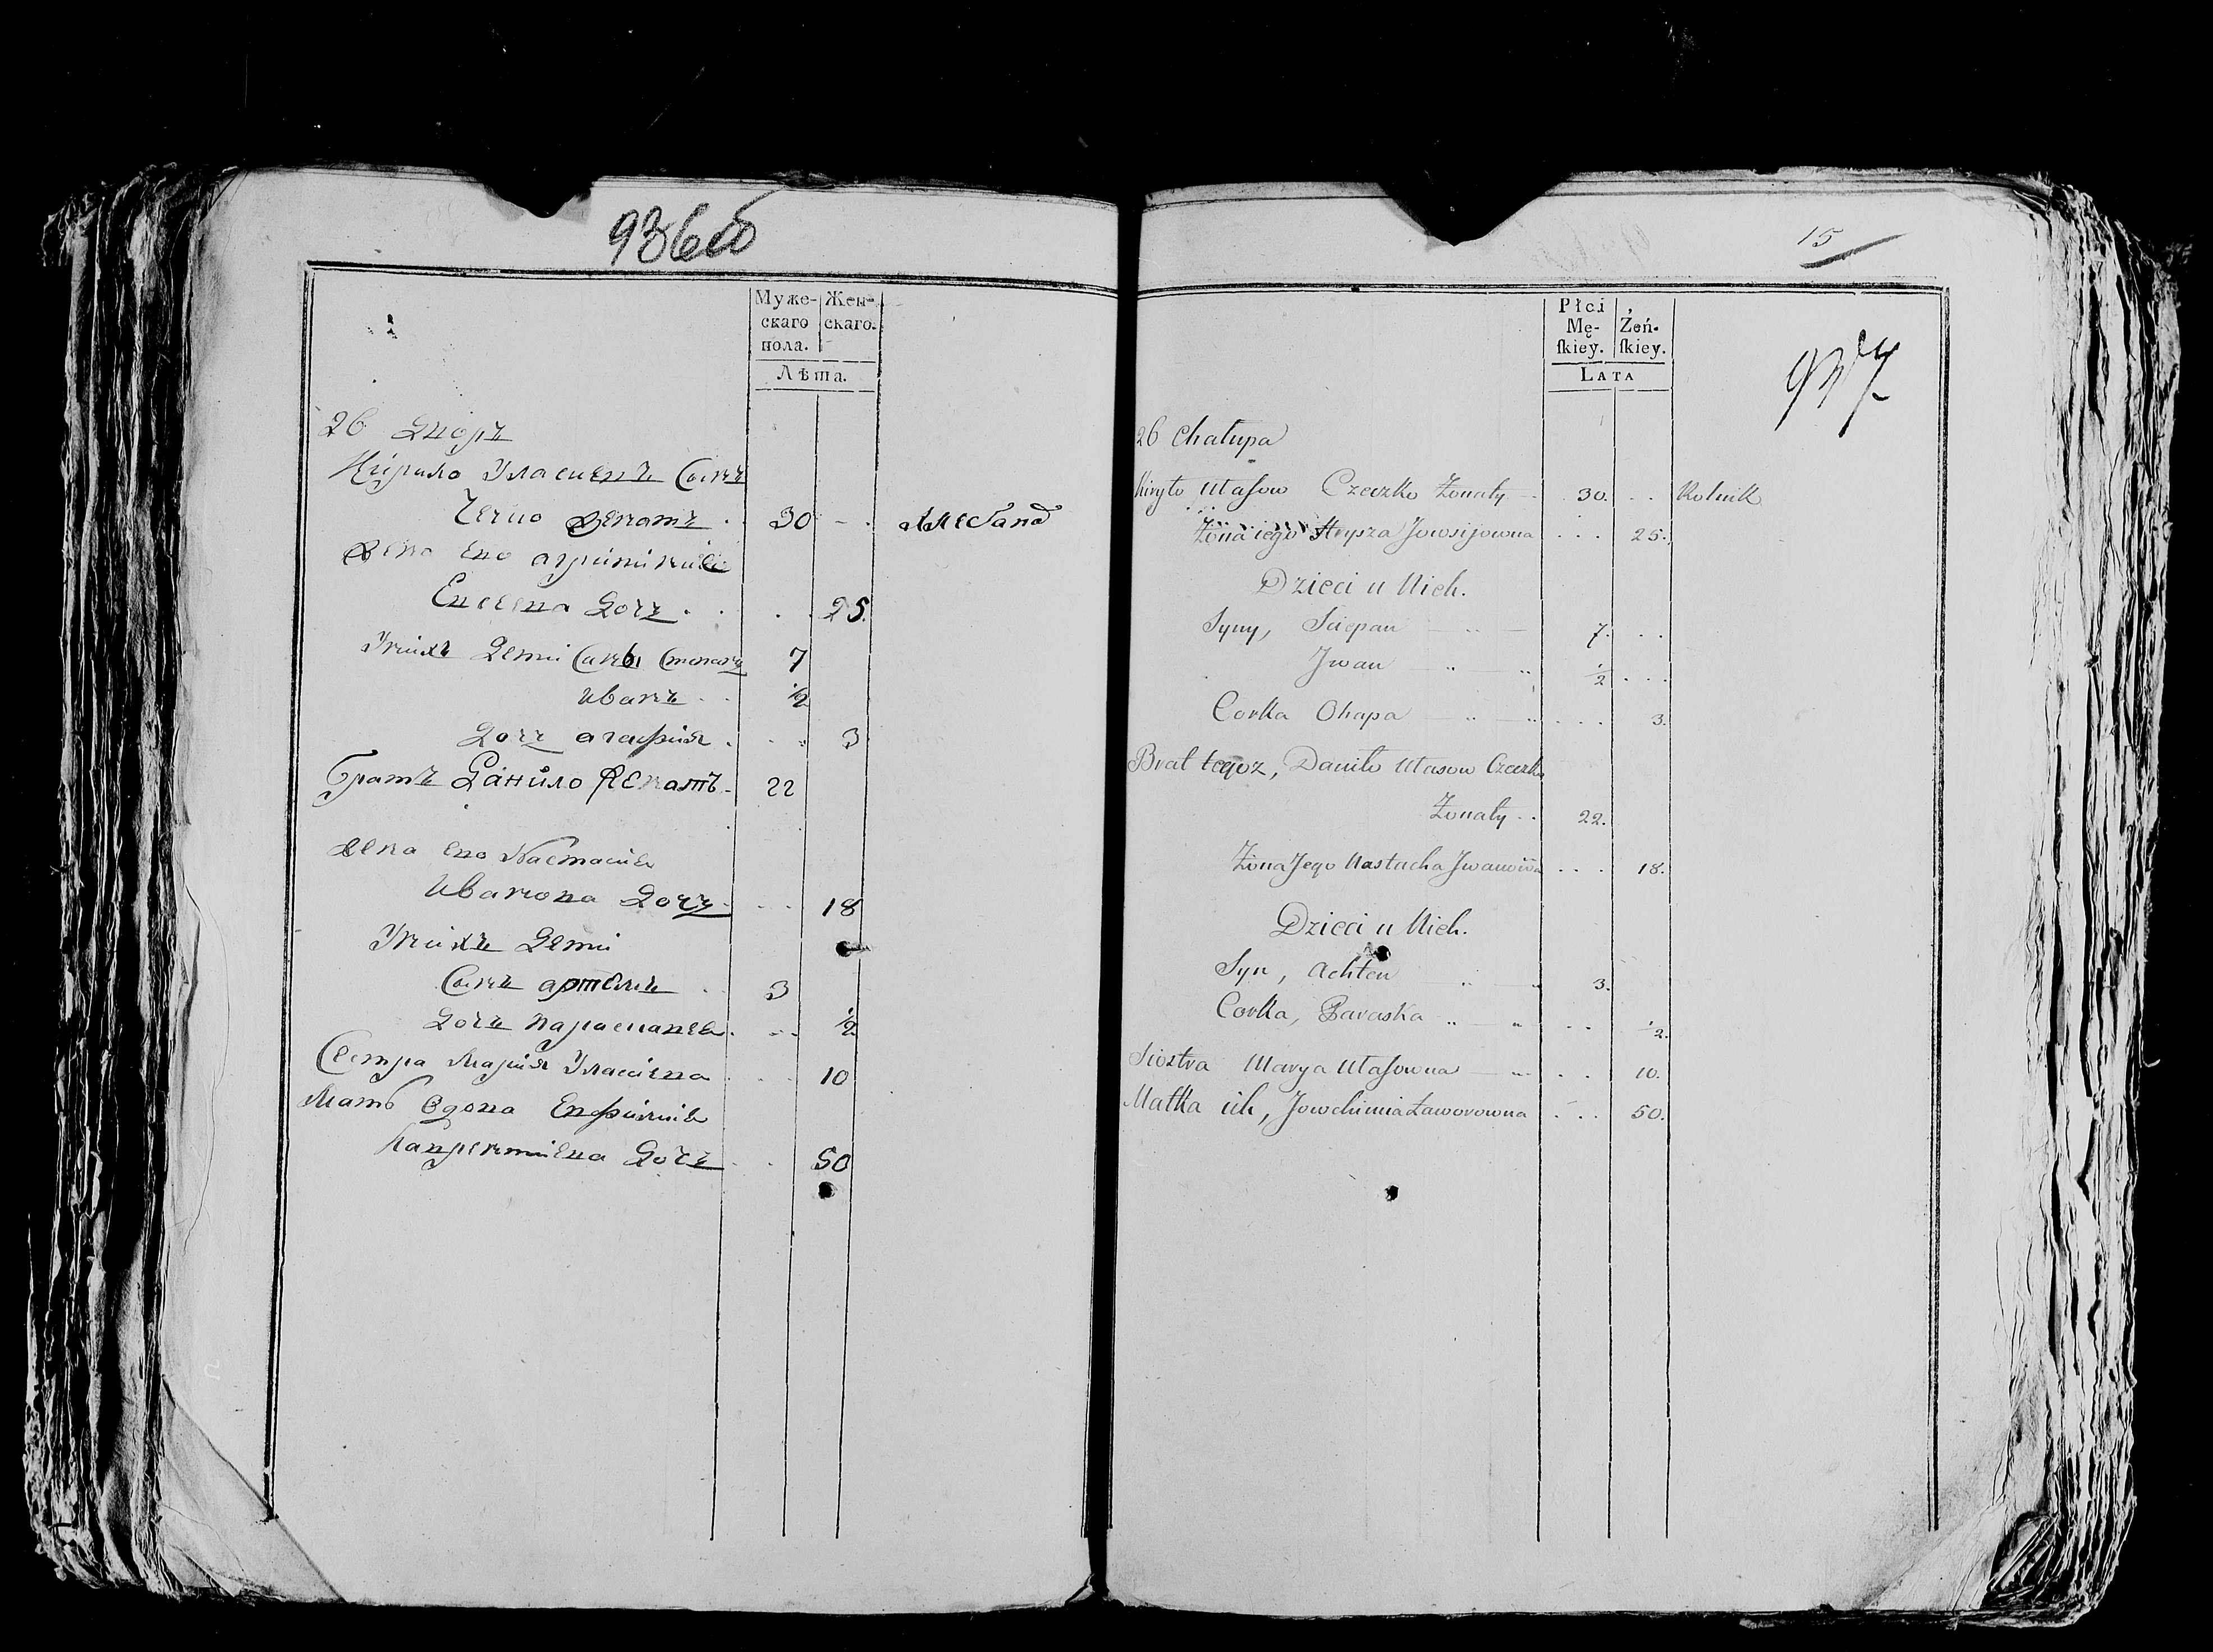 936об
Муже- Жен-
скаго скаго.
пола.
Лѣта.
26 Дворъ
Кирило Уласиевъ Сынъ
Чечко Женатъ . . 30 - .
Жена Ево
Евсеева Дочъ . . . . 25.
Унихъ Дети Сынъ Степанъ 7
Иванъ . . ½
Дочъ Агафия . . . 3
Братъ Данило Женатъ - 22
Жена Ево Настасия
Иванова Дочъ . . . 18
Унихъ Дети
Сынъ Артемъ . 3
Дочъ Парасковея . . . ½
Сестра Мария Уласиева . . . 10
Мать Вдова Евфимия
Дочъ . . 50
15
937
Płci
Mę- Żeń-
ſkiey. ſkiey.
LATA
26 Chałupa
Kiryło Ułasow Czeczko Żonaty - . 30. . . Rolnik
Żona iego Hrypza Jowsijowna . . . 25.
Dzieci u Nich.
Syny, Sciepan — " — 7. . .
Jwan — " — " ½ . . .
Corka Ohapa — " — " . . . 3.
Brat tegoż, Daniło Ułasow Czeczko
Żonaty . . 22.
Żona Jego Nastacha Jwanowna . . . 18.
Dzieci u Nich.
Syn, Achten " " 3.
Corka, Paraska " — " . . ½.
Siostra Marya Ułasowna — " . . 10.
Matka ich, Jowchimia Ławorowna . . . 50.